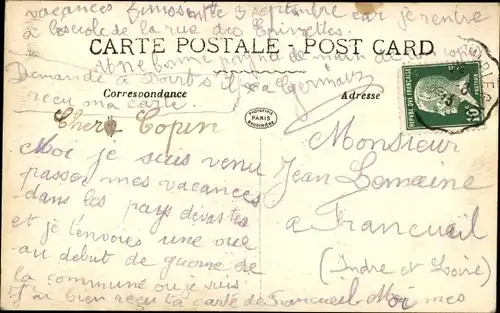 vacances 3 septembre car je rentre
à l'école de la rue des Epinettes
CARTE POSTALE - POST CARD
une bonne poignée de main
Demande à s'il a
reçu ma carte
Correspondance
Adresse
PARIS
Cher Copin
Moi je suis venu
passer mes vacances
dans les pays dévastés
et je t'envoies une vue
au début de guerre de
la commune ou je suis
J'ai bien reçu ta carte de Francueil Moi mes
Monsieur
Jean Lemaine
à Francueil
(Indre et Loire)